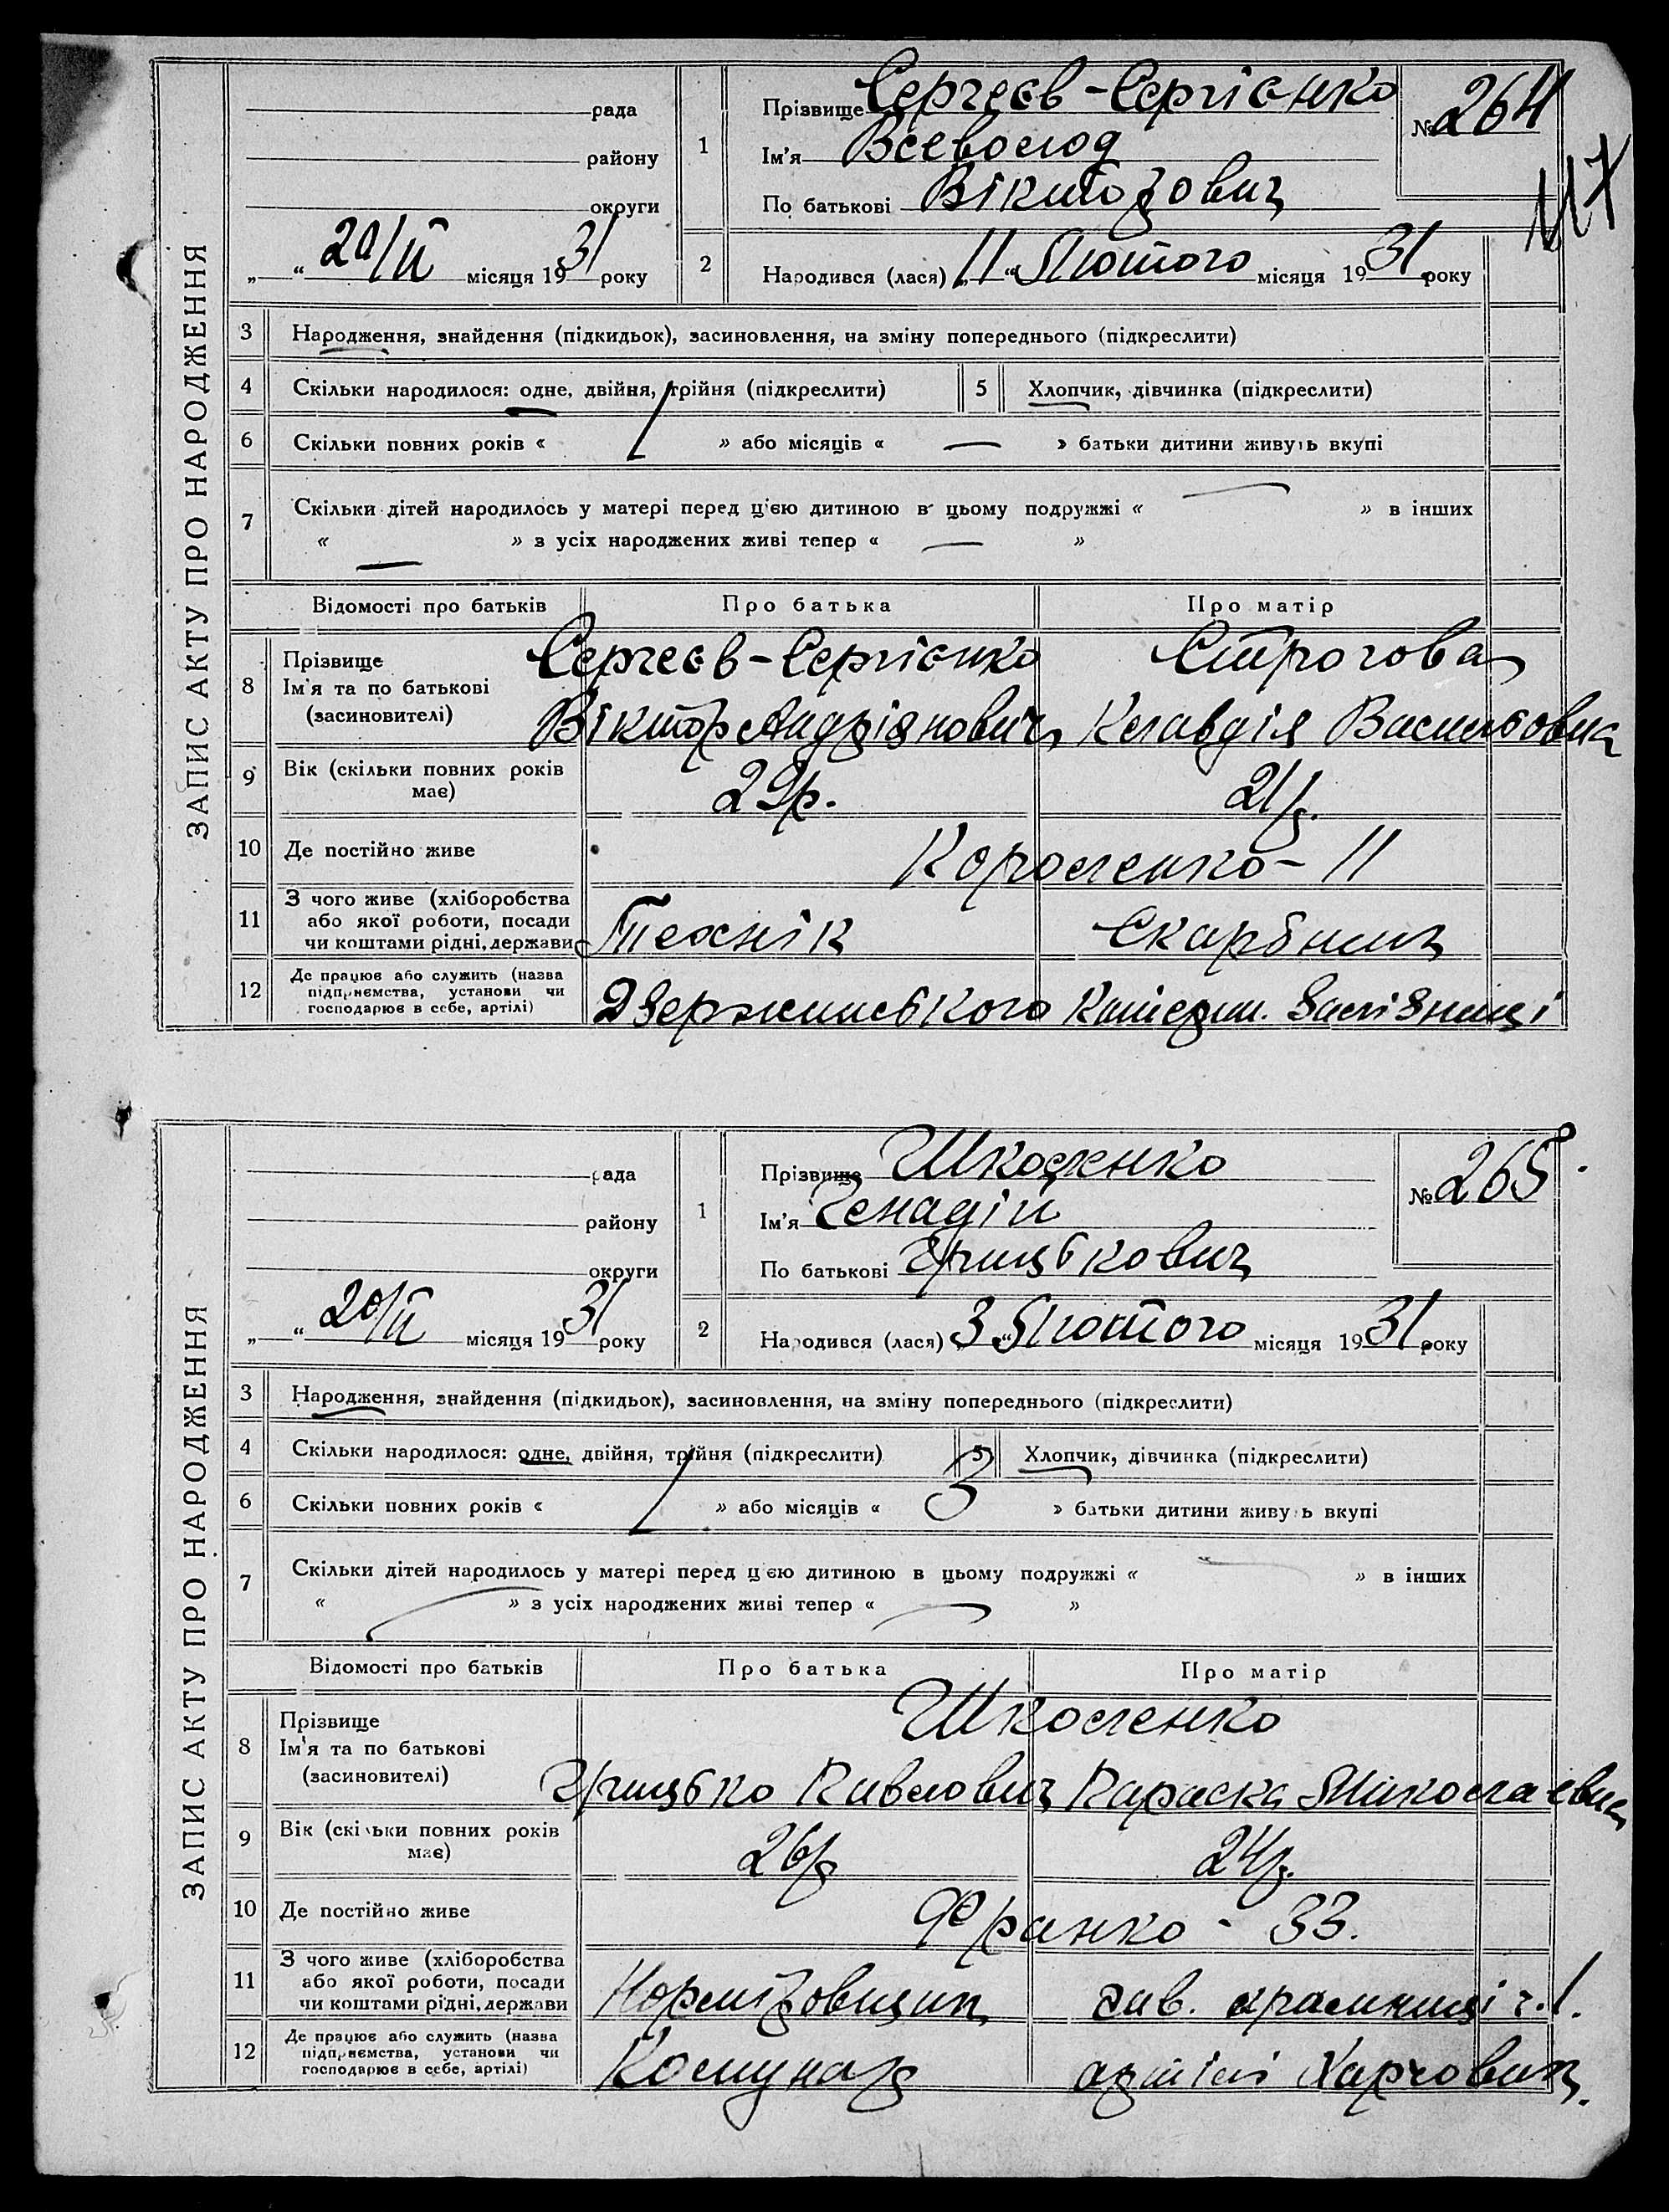 ЗАПИС АКТУ ПРО НАРОДЖЕННЯ
рада
району
округи
„ “ 20/II місяця 1931 року
1
Прізвище Сергеєв-Сергієнко
Ім'я Всеволод
По батькові Вікторович
№ 264
117
2
Народився (лася) „11“ Лютого місяця 1931 року
3 Народження, знайдення (підкидьок), засиновлення, на зміну попереднього (підкреслити)
4 Скільки народилося: одне, двійня, трійня (підкреслити)
5 Хлопчик, дівчинка (підкреслити)
6 Скільки повних років « 1 » або місяців « — » батьки дитини живуть вкупі
7 Скільки дітей народилось у матері перед цією дитиною в цьому подружжі « — » в інших
« — » з усіх народжених живі тепер « — »
Відомості про батьків Про батька Про матір
8 Прізвище
Ім'я та по батькові
(засиновителі)
Сергеєв-Сергієнко
Віктор Андріянович
Строгова
Клавдія Васильовна
9 Вік (скільки повних років має)
29р. 21р.
10 Де постійно живе
Короленко - 11
11 З чого живе (хліборобства
або якої роботи, посади
чи коштами рідні, держави
Технік Скарбник
12 Де працює або служить (назва
підприємства, установи чи
господарює в себе, артілі)
Дзержинського
ЗАПИС АКТУ ПРО НАРОДЖЕННЯ
рада
району
округи
„ “ 20/II місяця 1931 року
1
Прізвище Школенко
Ім'я Генадій
По батькові Грицькович
№ 265
2
Народився (лася) „3“ Лютого місяця 1931 року
3 Народження, знайдення (підкидьок), засиновлення, на зміну попереднього (підкреслити)
4 Скільки народилося: одне, двійня, трійня (підкреслити)
5 Хлопчик, дівчинка (підкреслити)
6 Скільки повних років « 1 » або місяців « 3 » батьки дитини живуть вкупі
7 Скільки дітей народилось у матері перед цією дитиною в цьому подружжі « — » в інших
« — » з усіх народжених живі тепер « — »
Відомості про батьків Про батька Про матір
8 Прізвище
Ім'я та по батькові
(засиновителі)
Школенко
Грицько Павлович Параска Миколаєвна
9 Вік (скільки повних років має)
26р 24р.
10 Де постійно живе
Франко - 33.
11 З чого живе (хліборобства
або якої роботи, посади
чи коштами рідні, держави
Норміровщик зав. крамниці ч. 1.
12 Де працює або служить (назва
підприємства, установи чи
господарює в себе, артілі)
Комунар артілі Харчовик.